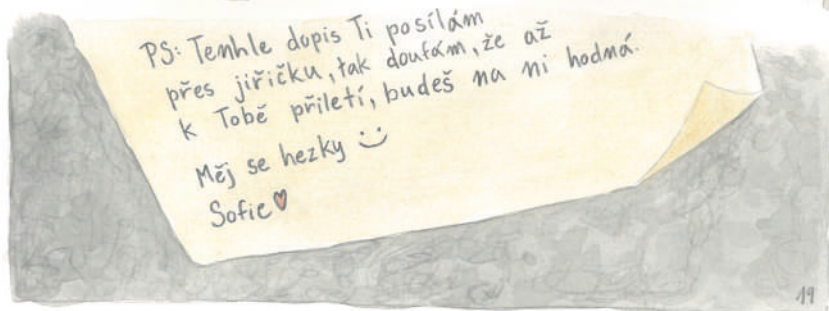 PS: Tenhle dopis Ti posílám
přes jiřičku, tak doufám, že až
k Tobě přiletí, budeš na ni hodná.
Měj se hezky :)
Sofie ♥
19